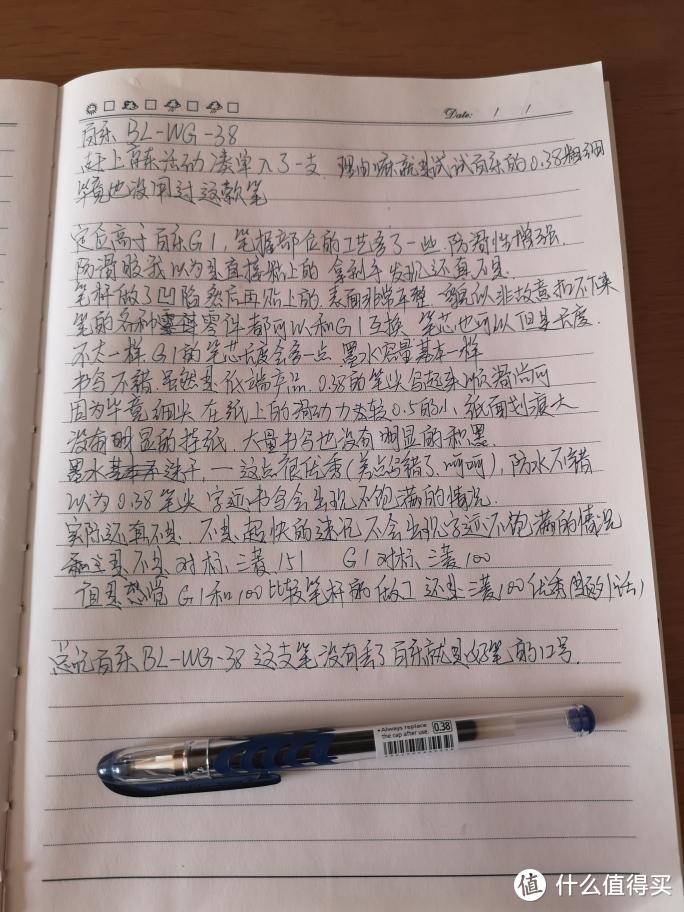 Date: / /
百乐 BL-WG-38
赶上京东活动凑单入了一支. 理由嘛就是试试百乐的0.38粗细
毕竟也没用过这款笔
定位高于百乐G1, 笔握部位的工艺多了一些. 防滑性增强.
防滑胶我以为是直接粘上的. 拿到手发现还真不是.
笔杆做了凹陷然后再贴上的. 表面非常平整 所以非故意扣不下来
笔的各种零件都可以和G1互换. 笔芯也可以但是长度.
不太一样. G1的笔芯长度会多一点 墨水容量基本一样
书写不错. 虽然是低端产品. 0.38的笔尖写起来顺滑尚可
因为毕竟细尖. 在纸上的滑动力较0.5的小 纸面划痕大
没有明显的挂纸. 大量书写也没有明显的积墨.
墨水速干, 这点很优秀(差点写错了. 呵呵), 防水不错
以为0.38笔尖 字迹书写会出现不饱满的情况.
实际还真不是. 不是超快的速记不会出现字迹不饱满的情况
是不是对标三菱151 G1对标三菱100
但是感觉 G1和100比较笔杆的做工 还是三菱100优秀
总之百乐BL-WG-38 这支笔没有丢了百乐就是好笔的口号.
• Always replace
the cap after use.
0.38
值 什么值得买